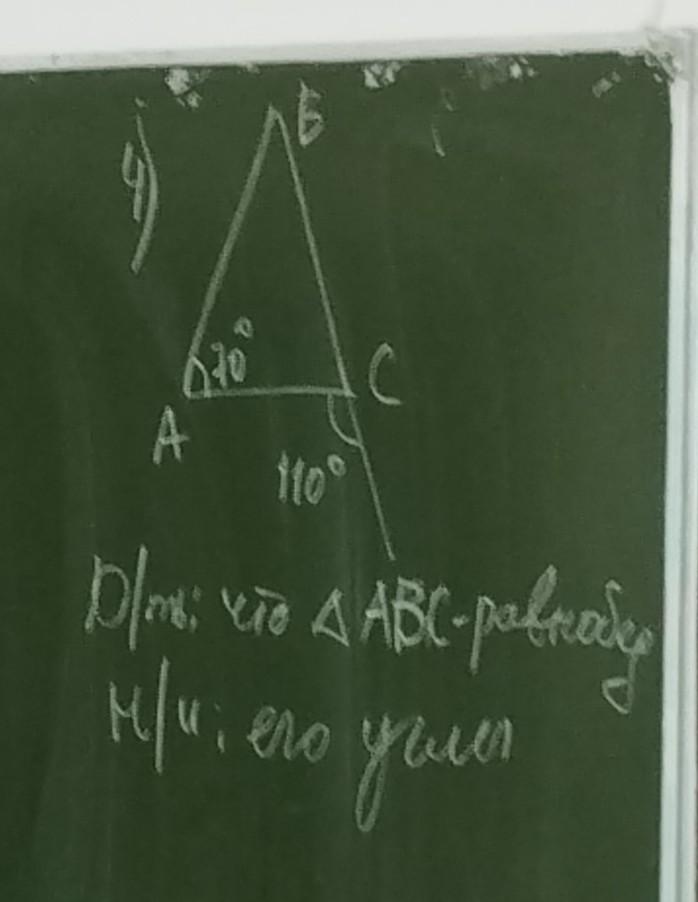 4)
B
70°
A
C
110°
D/т: что △ABC-равнобед
Н/и: его углы